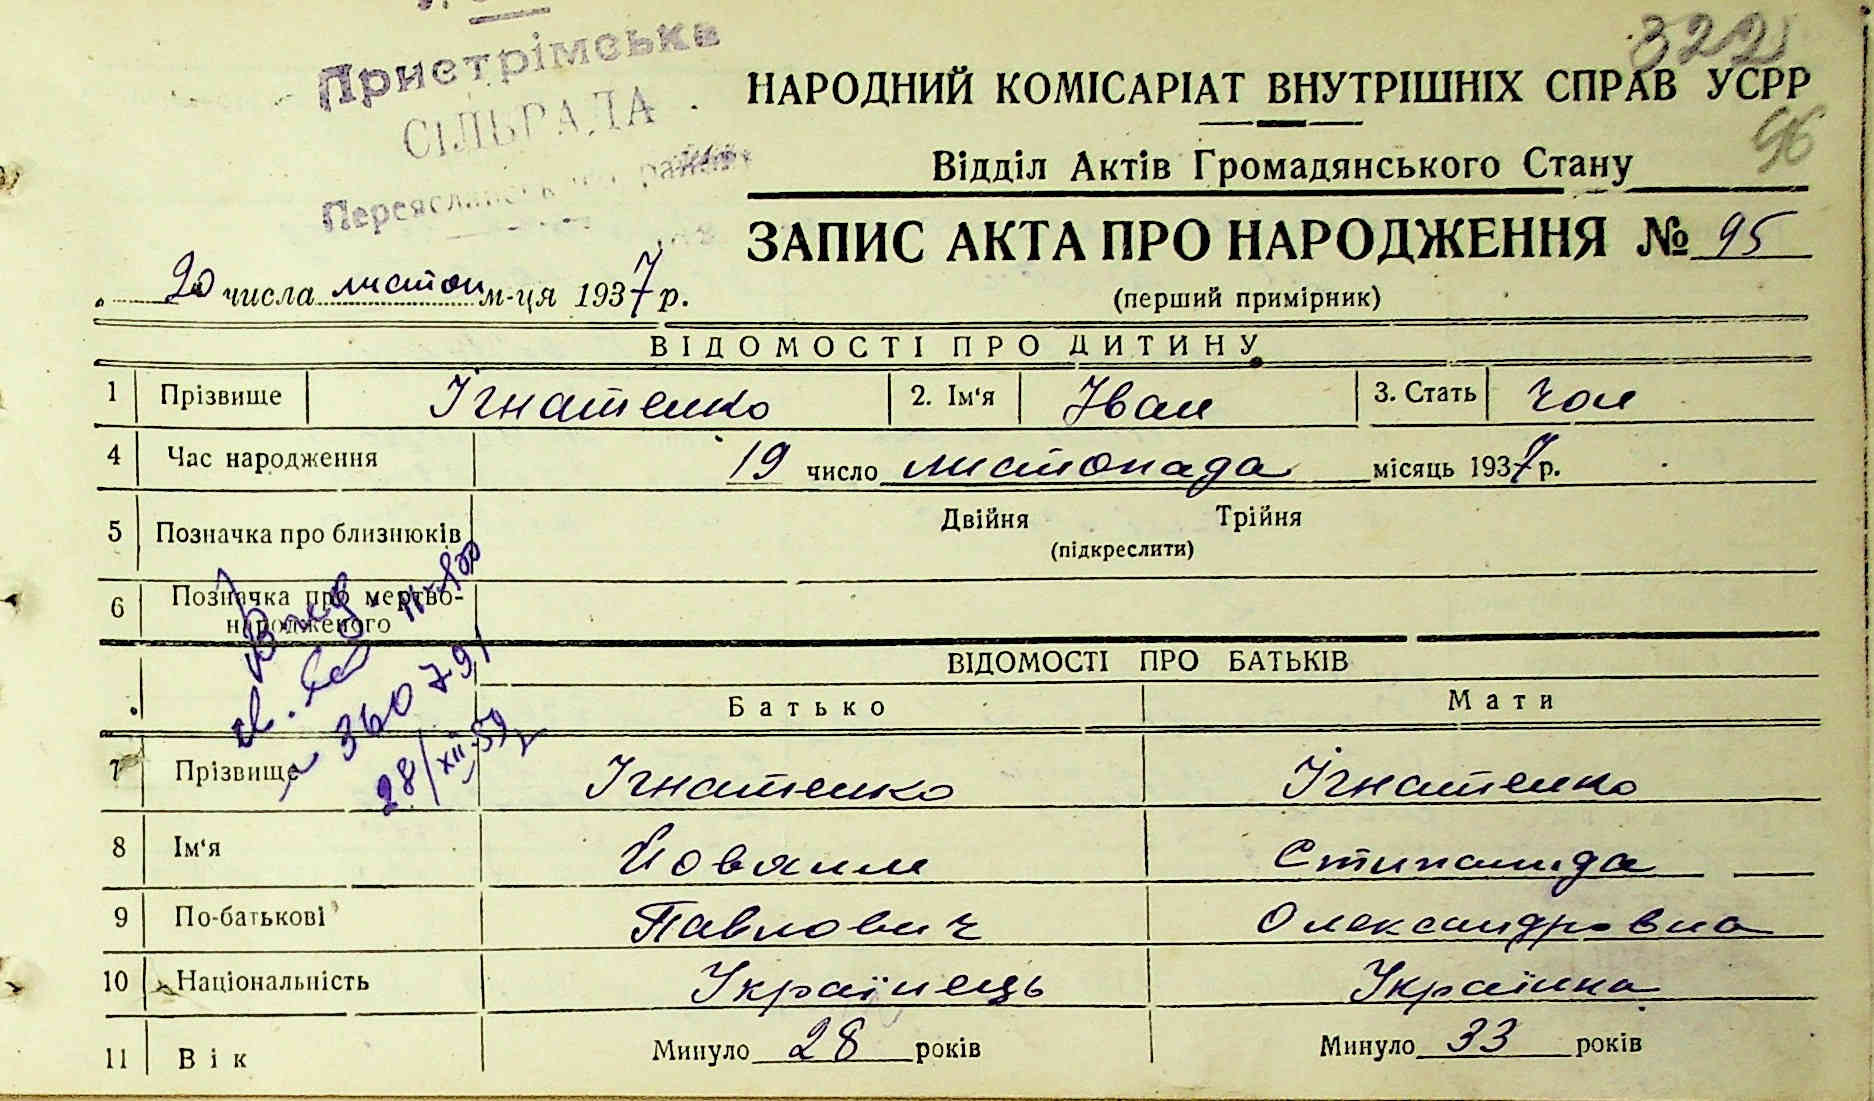 Пристрімська
СІЛЬРАДА
Переяславського району
322
96
НАРОДНИЙ КОМІСАРІАТ ВНУТРІШНІХ СПРАВ УСРР
Відділ Актів Громадянського Стану
ЗАПИС АКТА ПРО НАРОДЖЕННЯ № 95
20 числа листоп м-ця 1937 р.
(перший примірник)
ВІДОМОСТІ ПРО ДИТИНУ
1 Прізвище Ігнатенко 2. Ім'я Іван 3. Стать чол
4 Час народження 19 число листопада місяць 1937 р.
5 Позначка про близнюків Двійня Трійня
(підкреслити)
6 Позначка про мертво-
народженого
360791
28/XII-59
ВІДОМОСТІ ПРО БАТЬКІВ
Батько Мати
7 Прізвище Ігнатенко Ігнатенко
8 Ім'я Йовхим Стипанида
9 По-батькові Павлович Олександровна
10 Національність Українець Українка
11 Вік Минуло 28 років Минуло 33 років